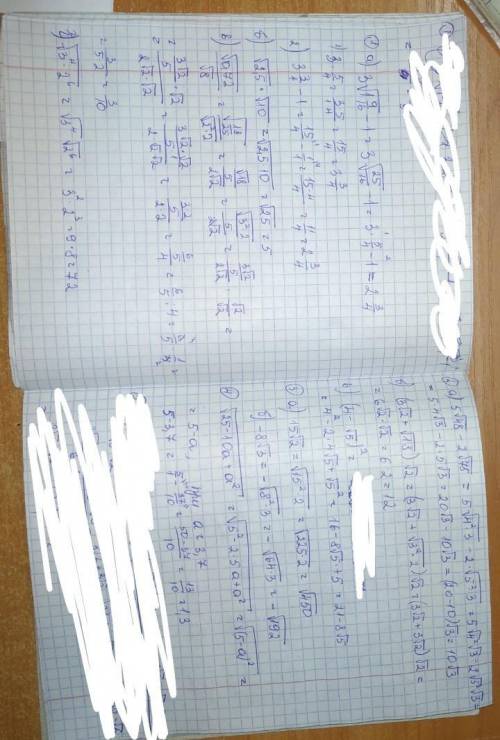 ① а) 3√(1 9/16) - 1 = 3·√(25/16) - 1 = 3·5/4 - 1 = 2 3/4
1) 3·5/4 = 3·5/4 = 15/4 = 3 3/4
2) 3 3/4 - 1 = 15/4 - 1/1 = 15-4/4 = 11/4 = 2 3/4
б) √2,5 · √10 = √2,5·10 = √25 = 5
= 3/5·2 = 3/10
г) √3⁴·2⁶ = √3⁴ · √2⁶ = 3²·2³ = 9·8 = 72
② а) 5√48 - 2√75 = 5√4²·3 - 2√5²·3 = 5·4·√3 - 2·5√3 =
= 5·4√3 - 2·5√3 = 20√3 - 10√3 = (20-10)√3 = 10√3
б) (3√2 + √18)·√2 = (3√2 + √3²·2)√2 = (3√2 + 3√2)√2 =
= 6√2·√2 = 6·2 = 12
в) (4-√5)² =
= 4² - 2·4√5 + √5² = 16 - 8√5 + 5 = 21 - 8√5
③ а) 15√2 = √15²·2 = √225·2 = √450
б) -8√3 = -√8²·3 = -√64·3 = -√192
④ √25-10a+a² = √5²-2·5a+a² = √(5-a)² =
= 5-a, при a = 3,7
5-3,7 = 5 - 3 7/10 = 50-37/10 = 13/10 = 1,3